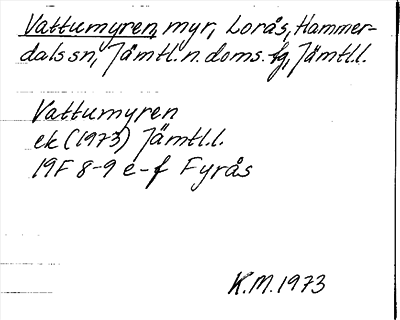 Vattumyren, myr, Lorås, Hammer-
dals sn, Jämtl. n. doms. fg, Jämtl.l.
Vattumyren
ek (1973) Jämtl.l.
19F 8-9 e-f Fyrås
K.M. 1973